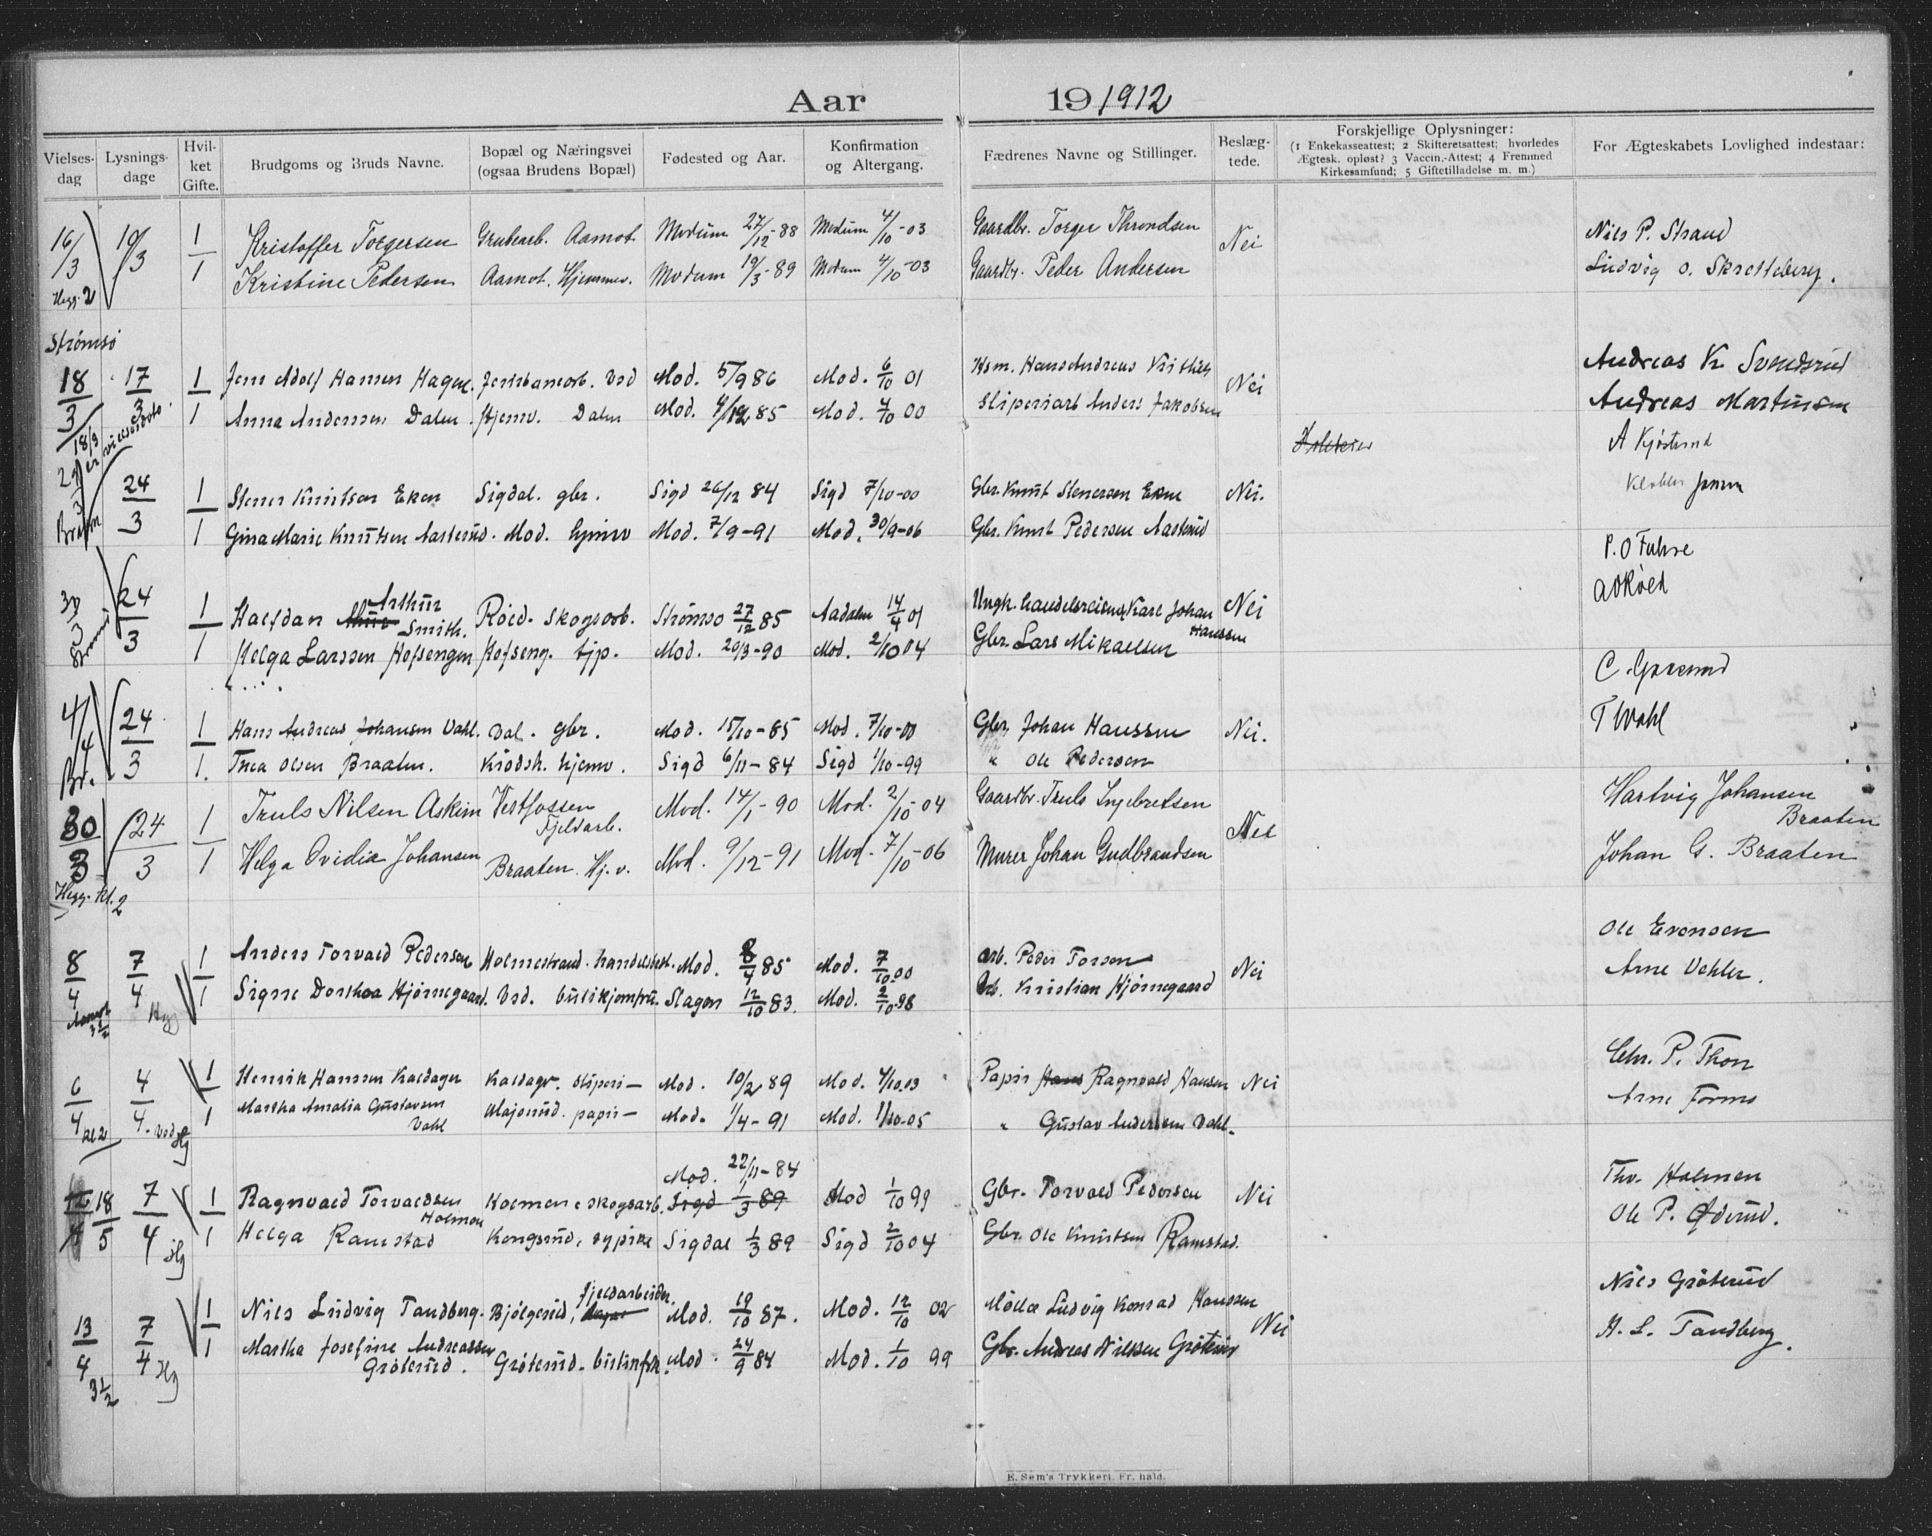 Aar 19 1912
Vielses-dag Lysnings-dage Hvil-ket Gifte. Brudgoms og Bruds Navne. Bopæl og Næringsvei (ogsaa Brudens Bopæl) Fødested og Aar. Konfirmation og Altergang. Fædrenes Navne og Stillinger. Beslæg-tede. Forskjellige Oplysninger: (1 Enkekasseattest; 2 Skifteretsattest; hvorledes Ægtesk. opløst? 3 Vaccin.-Attest; 4 Fremmed Kirkesamfund; 5 Giftetilladelse m. m.) For Ægteskabets Lovlighed indestaar:
16/3 10/3 1 Kristoffer Torgersen Grubearb. Aamot Modum 27/12-88 Modum 4/10-03 Gaardbr. Torger Throndsen Nei Nils P. Strand
1 Kristine Pedersen Aamot. Hjemmev. Modum 19/3-89 Modum 4/10-03 Gaardbr. Peder Andersen Ludvig O. Skretteberg.
Hegg. 2
Strømsø
18/3 17/3 1 Jens Adolf Hansen Hagen. Vsd Mod. 5/9 86 Mod. 6/10 01 Hsm. Hans Andreas Nei Andreas K Svendsrud
1 Anna Andersen Dalen. Hjemv. Dalen Mod. 4/12 85 Mod. 7/10 00 Sliperiarb Anders Jakobsen Andreas Martinsen
18/3 er vielsesdato.
A Kjøsterud
24/3 1 Stener Knutsen Eken Sigdal. gbr. Sigd 26/12 84 Sigd 7/10-00 Gbr. Knut Stenersen Ekne Nei. Jensen
1 Gina Marie Knutsen Aasterud. Mod. hjemv Mod. 7/9-91 Mod. 30/9-06 Gbr. Knut Pedersen Aasterud
P. O Fuhre
30/3 24/3 1 Halfdan Arthur Smith. Røed. Skogsarb. Strømsø 27/12 85 Aadalen 14/4 01 Ungk. handelsreisende Karl Johan Hanssen Nei A Røed
1 Helga Larssen Hofsengen Hofseng. tjp. Mod. 20/3-90 Mod. 2/10 04 Gbr. Lars Mikaelsen
4/4 24/3 1 Hans Andreas Johansen Vahl. Dal. gbr. Mod. 15/10-85 Mod. 7/10-00 Gbr. Johan Hanssen Nei. T Wahl
Br. 1. Thea Olsen Braaten. Krødsh. hjemv. Sigd 6/11-84 Sigd 1/10-99 " Ole Pedersen
30/3 24/3 1 Truls Nilsen Askim Vestfossen Fjeldarb. Mod. 14/1-90 Mod. 2/10-04 Gaardbr. Truls Ingebretsen Nei Hartvig Johansen Braaten
1 Helga Ovidia Johansen Braaten. Hj. v. Mod. 9/12-91 Mod. 7/10-06 Murer Johan Gudbrandsen Johan G. Braaten
Hegg. kl. 2
8/4 7/4 1 Anders Torvald Pedersen Holmestrand. Mod. 8/4 85 Mod. 7/10 00 Arb. Peder Torsen Nei Ole Evensen
1 Signe Dorthea Hjörnegaard. Vsd. butikjomfru. Slagen 12/10 83. Mod. 2/10 98 Arb. Kristian Hjörnegaard Arne Vehler.
6/4 4/4 1 Henrik Hansen Kaldager Kaldager. sliperi— Mod. 10/2 89 Mod. 4/10.03 Papir Ragnvald Hansen Nei Chr. P. Thon
kl 2 Vsd 1 Martha Amalia Gustavsen Vahl Majorud. papir— Mod. 1/4-91 Mod. 1/10-05 " Gustav Andersen Vahl. Arne Formo
18/5 7/4 1 Ragnvald Torvaldsen Holmen Holmen skogsarb. Mod. 22/11-84 Sigd 1/3 89 Mod 1/10 99 Gbr. Torvald Pedersen Nei Thv. Holmen
1 Helga Ramstad Kongsrud, sypike Sigdal 1/3 89 Sigd 2/10 04 Gbr. Ole Knutsen Ramstad. Ole P. Øderud.
13/4 7/4 1 Nils Ludvig Tandberg. Bjølgerud, fjeldarbeider. Mod. 19/10 87. Mod. 12/10 02 Ludvig Konrad Hanssen Nei Nils Gröterud
3½ Hg 1 Martha Josefine Andreassen Gröterud. Gröterud. Mod. 24/9 84 Mod. 1/10 99 Gbr. Andreas Nilssen Gröterud H. L. Tandberg.
E. Sem's Trykkeri, Fr. hald.